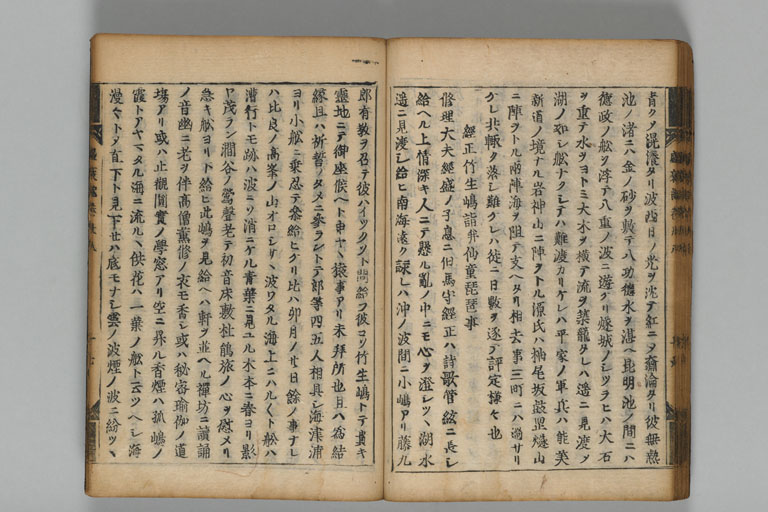 青クソ滉瀁タリ波西日ノ光ヲ沈テ紅ニソ奫淪タリ彼無熱
池ノ渚ニハ金ノ砂ヲ敷テ八功徳水ヲ湛ヘ昆明池ノ間ニハ
徳政ノ舩ヲ浮テ八重ノ波ニ遊ケリ燧城ノシツラヒハ大石
ヲ重テ水ヲヨトミ大木ヲ横テ流ヲ築籠タレハ遥ニ見渡メ
湖ノ如シ舩ナクシテハ難渡カリケレハ平家ノ軍兵ハ能美
新道ノ境ナル岩神山ニ陣ヲトル源氏ハ柚尾坂 燧山
ニ陣ヲトル両陣海ヲ阻テ支ヘタリ相去事三町ニハ過サリ
ケレ共輙ク落シ難ケレハ徒ニ日数ヲ送テ評定様々也
経正竹生嶋詣并仙童琵琶事
修理大夫経盛ノ子息ニ但馬守経正ハ詩歌管絃ニ長シ
給ヘル上情深キ人ニテ懸ル乱ノ中ニモ心ヲ澄シツヽ湖水
遥ニ見渡シ給ヒ南海遠ク詠シハ沖ノ波間ニ小嶋アリ藤九
郎有教ヲ召テ彼ハイツクソト問給フ彼コソ竹生嶋トテ貴キ
霊地ニテ御座候ヘト申ケレハ猿事アリ未拝所也且ハ為結
縁且ハ祈誓ノタメニ参ラントテ郎等四五人相具シ海津浦
ヨリ小舩ニ乗忍テ参給ヒケリ比ハ卯月ノ廿日餘ノ事ナレ
ハ比良ノ高峯ノ山オロシサヽ波ワタル海上ニハルハルト舩ハ
漕行トモ跡ハ波ニソ消ニケル青葉ニ見ユル木本ニ春ヨリ影
ヤ茂ラン澗谷ノ鶯聲老テ初音床敷杜鵑旅ノ心ヲ慰メリ
急キ舩ヨリ下給ヒ此嶋ヲ見給ヘハ軒ヲ並ヘル禅坊ニ讀誦
ノ音幽ニ老ヲ伴高僧薫修ノ衣モ香シ或ハ秘密瑜伽ノ道
塲アリ或ハ止観圓實ノ學窓アリ空ニ昇ル香煙ハ孤嶋ノ
霞トアヤマタル海ニ流ルヽ供花ハ一葉ノ舩トモ云ツヘシ海
漫々トメ直下ト見下セハ底モナシ雲ノ波煙ノ波ニ紛ツヽ